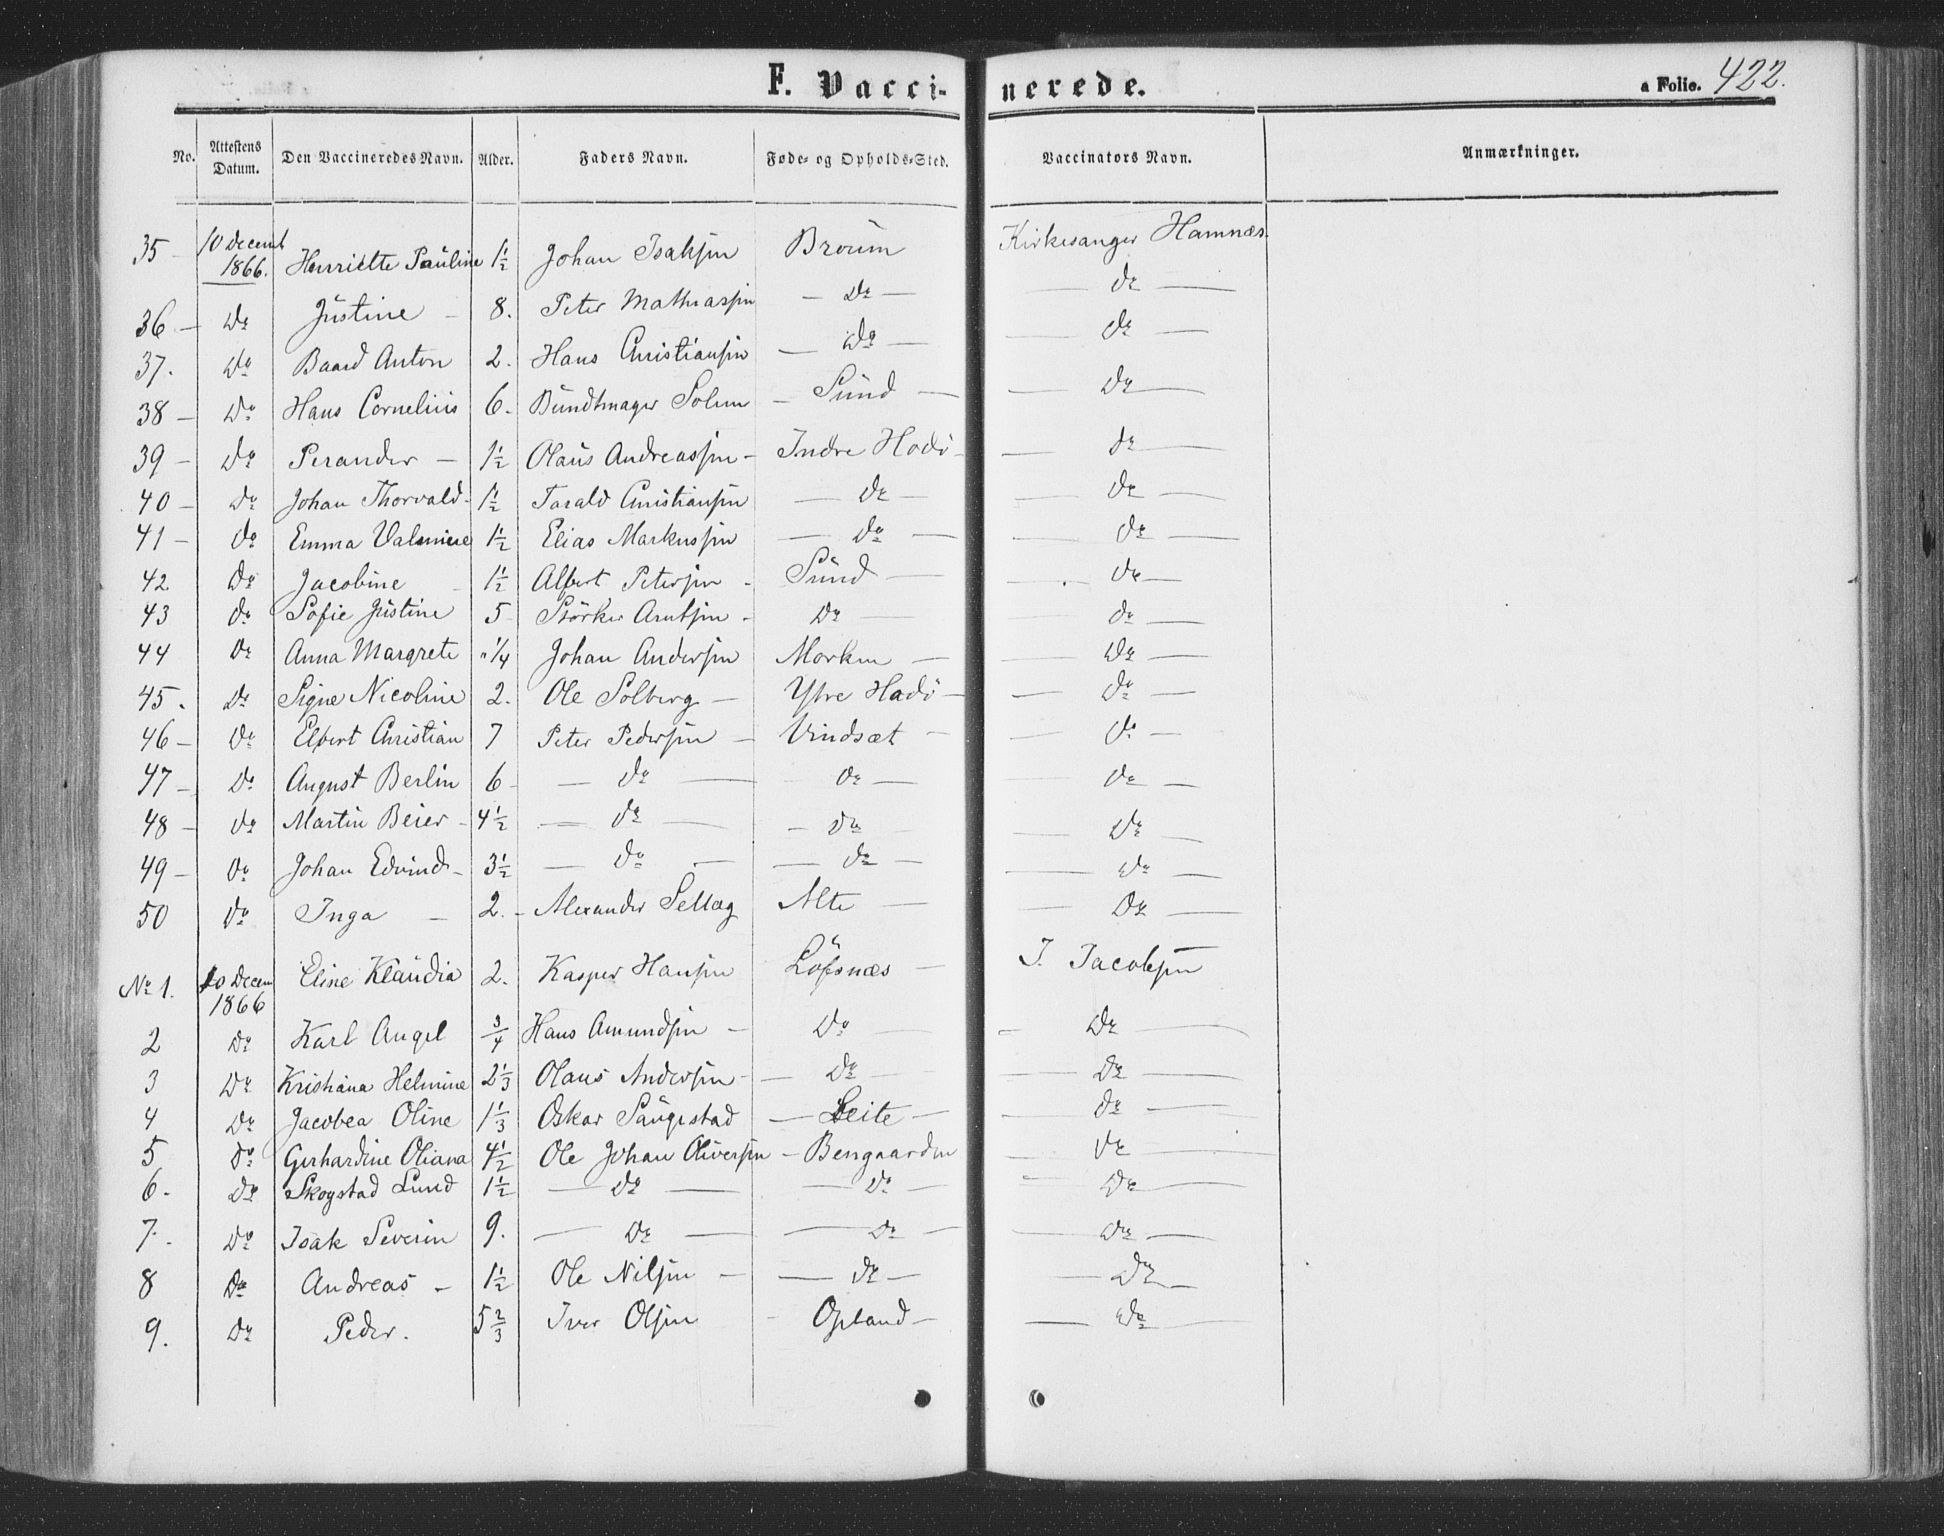 F. Vaccinerede. a Folio. 422.
No. Attestens Datum. Den Vaccineredes Navn. Alder. Faders Navn. Føde- og Opholds-Sted. Vaccinators Navn. Anmærkninger.
35 10 Decemb 1866. Henriette Pauline 1½ Johan Isaksen Broum Kirkesanger Hamnæs.
36 — Do Justine — 8. Peter Mathiassen — Do — — do —
37. Do Baard Anton 2. Hans Christiansen — Do — — do —
38 — Do Hans Cornelius 6. Bundtmager Solem — Sund — — Do —
39 — Do Perander — 1½ Olaus Andreassen — Indre Hodö — — do —
40 — Do Johan Thorvald — 1½ Tarald Christiansen — do — — do —
41 — do Emma Valmine 1½ Elias Markussen — do — — do —
42 Do Jacobine — 1½ Albert Petersen — Sund — — do —
43 do Sofie Justine 5 Störker Arntsen — Do — — do —
44 do Anna Margrete " ¼ Johan Andersen Morken — — Do —
45. Do Signe Nicoline 2. Ole Solberg — Ytre Hodö — — do —
46 — Do Elbert Christian 7 Peter Pedersen — Vindsæt — — do —
47 — Do August Berlin 6 — do — do — — do —
48 — do Martin Beier — 4½ — do — — do — — Do —
49 — do Johan Edvind — 3½ — do — — do — — do —
50 do Inga — 2. — Alexander Sellæg Alte — — Do —
No 1. 10 Decem 1866 Eline Klaudia 2. Kasper Hansen Löfsnæs — J. Jacobsen
2 Do Karl Angel ¾ Hans Amundsen — Do — — Do —
3 Do Kristiana Helmine 2⅓ Olaus Andersen — — Do — — Do —
4 Do Jacobea Oline 1⅓ Oskar Saugestad — Leite — — do —
5 do Gerhardine Oliana 4½ Ole Johan Oliversen — Bengaarden — do —
6. Do Skogstad Lund 1½ — do — — do — — Do —
7. Do Isak Severin 9. — Do — — Do — — Do —
8 Do Andreas — 1½ Ole Nilsen — — do — — Do —
9. Do Peder. 5⅔ Iver Olsen — Opland — — Do —